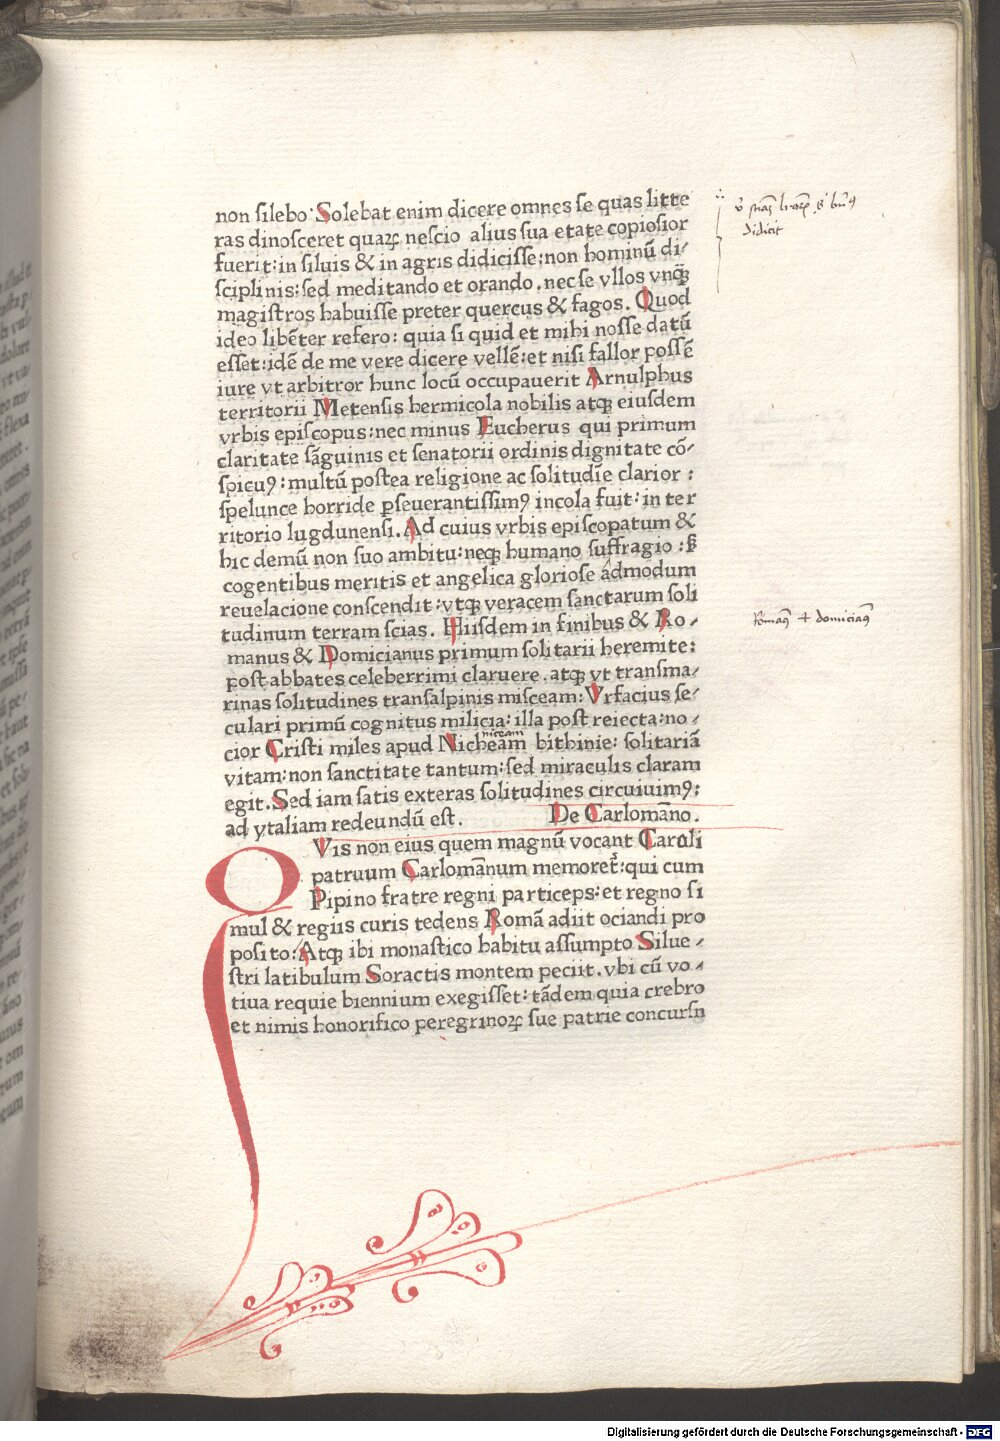 non ſilebo· Solebat enim dicere omnes ſe quas litte
ras dinoſceret quaꝝ neſcio alius ſua etate copioſior
fuerit: in ſiluis & in agris didiciſſe: non hominū di⸗
ſciplinis: ſed meditando et orando . nec ſe vllos vnq̄ꝫ
magiſtros habuiſſe preter quercus & fagos. Quod
ideo libēter refero: quia ſi quid et mihi noſſe datū
eſſet: idē de me vere dicere vellē: et niſi fallor poſſē
iure vt arbitror hunc locū occupauerit Arnulphus
territorii Metenſis hermicola nobilis atqꝫ eiuſdem
vrbis epiſcopus: nec minus Eucherus qui primum
claritate ſāguinis et ſenatorii ordinis dignitate cō⸗
ſpicuꝰ: multū poſtea religione ac ſolitudīe clarior :
ſpelunce horride ꝑſeuerantiſſimꝰ incola fuit: in ter
ritorio lugdunenſi. Ad cuius vrbis epiſcopatum &
hic demū non ſuo ambitu: neqꝫ humano ſuffragio : ſꝫ
cogentibus meritis et angelica glorioſe admodum
reuelacione conſcendit: vtqꝫ veracem ſanctarum ſoli
tudinum terram ſcias. Hiiſdem in finibus & Ro⸗
manus & Domicianus primum ſolitarii heremite:
poſt abbates celeberrimi claruere . atqꝫ vt tranſma⸗
rinas ſolitudines tranſalpinis miſceam: Vrfacius ſe⸗
culari primū cognitus milicia: illa poſt reiecta: no⸗
niceam
cior Criſti miles apud Nicheam bithinie: ſolitariā
vitam: non ſanctitate tantum: ſed miraculis claram
egit. Sed iam ſatis exteras ſolitudines circuiuimꝰ:
ad ytaliam redeundū eſt. De Carlomāno.
QVis non eius quem magnū vocant Caroli
patruum Carlomānum memoret̄: qui cum
Pipino fratre regni particeps: et regno ſi
mul & regiis curis tedens Romā adiit ociandi pro
poſito: Atqꝫ ibi monaſtico habitu aſſumpto Silue⸗
ſtri latibulum Soractis montem peciit. vbi cū vo⸗
tiua requie biennium exegiſſet: tādem quia crebro
et nimis honorifico peregrinoꝝ ſue patrie concurſu
didicit
Romanꝰ + domicianꝰ
Digitalisierung gefördert durch die Deutsche Forschungsgemeinschaft - DFG